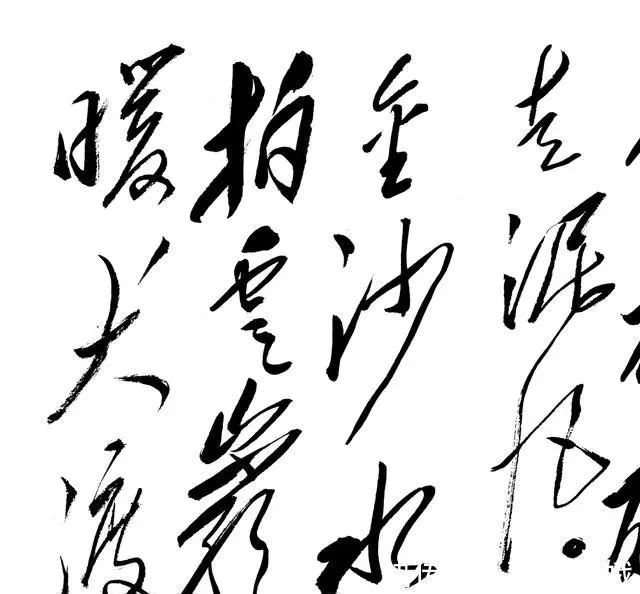 走泥丸。
金沙水
拍雲巖
暖大渡